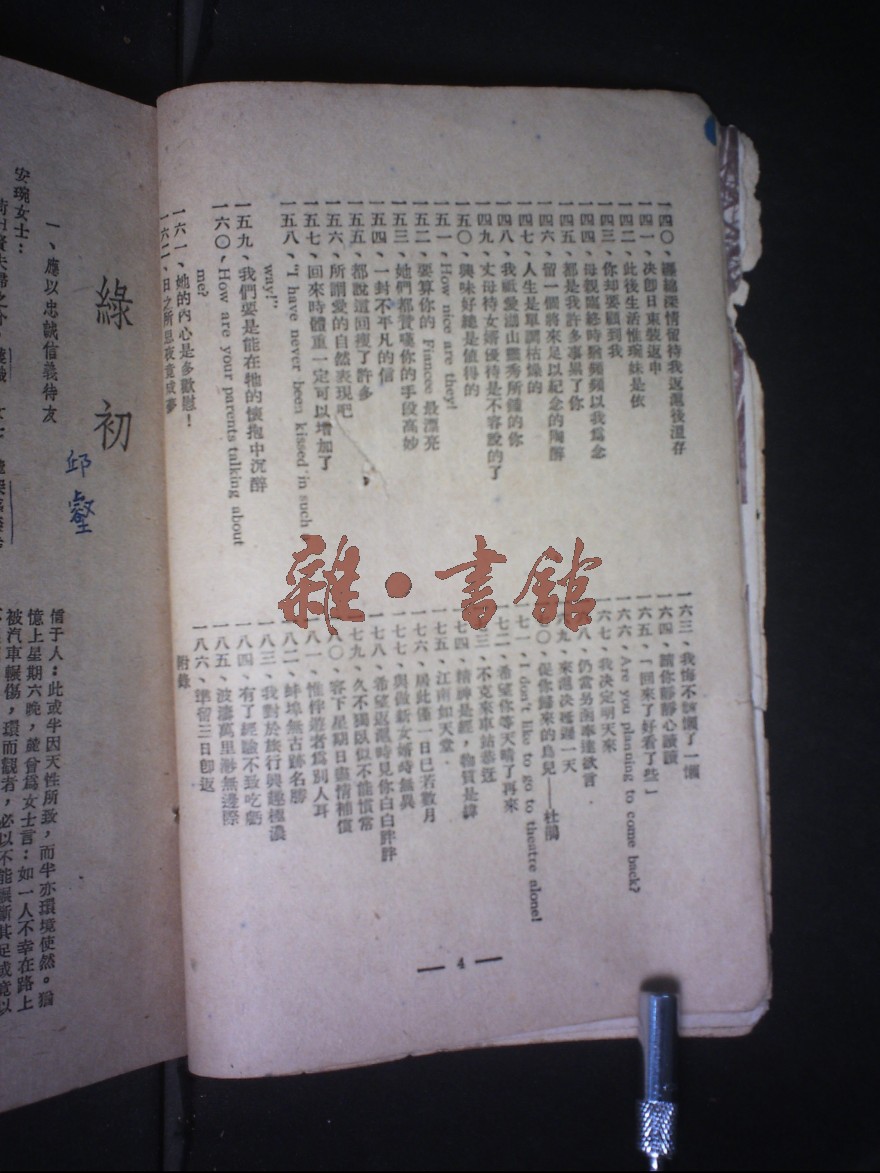 一四〇、纏綿深情留待我返滬後溫存
一四一、決卽日束裝返申
一四二、此後生活惟琬妹是依
一四三、你却要顧到我
一四四、母親臨終時猶頻頻以我爲念
一四五、都是我許多事累了你
一四六、留一個將來足以紀念的陶醉
一四七、人生是單調枯燥的
一四八、我祗愛湖山靈秀所鍾的你
一四九、丈母待女婿優待是不容說的了
一五〇、興味好總是值得的
一五一、How nice are they!
一五二、要算你的 Fiancee 最漂亮
一五三、她們都贊嘆你的手段高妙
一五四、一封不平凡的信
一五五、都說這回瘦了許多
一五六、所謂愛的自然表現吧
一五七、回來時體重一定可以增加了
一五八、"I have never been kissed in such
way!"
一五九、我們要是能在牠的懷抱中沉醉
一六〇、How are your parents talking about
me?
一六一、她的內心是多歡慰！
一六二、日之所思夜竟成夢
一六三、我悔不該懶了一懶
一六四、讓你靜靜心讀讀
一六五、「回來了好看了些」
一六六、Are you planning to come back?
一六七、我決定明天來
八、仍當另函率達欵言
九、來滬決遲一天
〇、促你歸來的鳥兒——杜鵑
一七一、I don't like to go to theatre alone!
一七二、希望你等天晴了再來
三、不克來車站恭迓
七四、精神是經，物質是緯
一七五、江南如天堂
一七六、居此僅一日已若數月
一七七、與做新女婿時無異
一七八、希望返滬時見你白白胖胖
七九、久不獨以似不能慣常
八〇、容下星期日盡情補償
八一、惟伴遊者爲別人耳
一八二、蚌埠無古跡名勝
一八三、我對於旅行興趣極濃
一八四、有了經驗不致吃虧
一八五、波濤萬里渺無邊際
一八六、準留三日卽返
附錄
— 4 —
綠初
邱
一、應以忠誠信義待友
安琬女士：
信于人：此或半因天性所致，而半亦環境使然。猶
憶上星期六晚，麓曾爲女士言：如一人不幸在路上
被汽車輾傷，環而觀者，必以不能輾斷其足或竟以
雜·書館